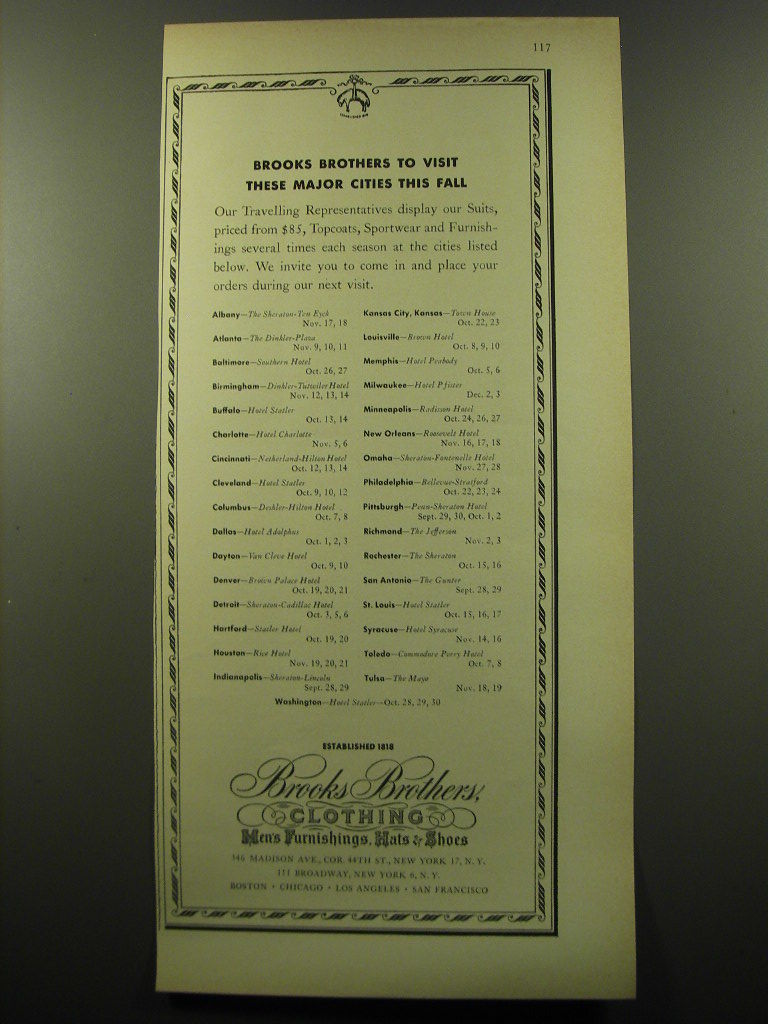 117
ESTABLISHED 1818
BROOKS BROTHERS TO VISIT
THESE MAJOR CITIES THIS FALL
Our Travelling Representatives display our Suits,
priced from $85, Topcoats, Sportwear and Furnish-
ings several times each season at the cities listed
below. We invite you to come in and place your
orders during our next visit.
Albany—The Sheraton-Ten Eyck
Nov. 17, 18
Atlanta—The Dinkler-Plaza
Nov. 9, 10, 11
Baltimore—Southern Hotel
Oct. 26, 27
Birmingham—Dinkler-Tutwiler Hotel
Nov. 12, 13, 14
Buffalo—Hotel Statler
Oct. 13, 14
Charlotte—Hotel Charlotte
Nov. 5, 6
Cincinnati—Netherland-Hilton Hotel
Oct. 12, 13, 14
Cleveland—Hotel Statler
Oct. 9, 10, 12
Columbus—Deshler-Hilton Hotel
Oct. 7, 8
Dallas—Hotel Adolphus
Oct. 1, 2, 3
Dayton—Van Cleve Hotel
Oct. 9, 10
Denver—Brown Palace Hotel
Oct. 19, 20, 21
Detroit—Sheraton-Cadillac Hotel
Oct. 3, 5, 6
Hartford—Statler Hotel
Oct. 19, 20
Houston—Rice Hotel
Nov. 19, 20, 21
Indianapolis—Sheraton-Lincoln
Sept. 28, 29
Kansas City, Kansas—Town House
Oct. 22, 23
Louisville—Brown Hotel
Oct. 8, 9, 10
Memphis—Hotel Peabody
Oct. 5, 6
Milwaukee—Hotel Pfister
Dec. 2, 3
Minneapolis—Radisson Hotel
Oct. 24, 26, 27
New Orleans—Roosevelt Hotel
Nov. 16, 17, 18
Omaha—Sheraton-Fontenelle Hotel
Nov. 27, 28
Philadelphia—Bellevue-Stratford
Oct. 22, 23, 24
Pittsburgh—Penn-Sheraton Hotel
Sept. 29, 30, Oct. 1, 2
Richmond—The Jefferson
Nov. 2, 3
Rochester—The Sheraton
Oct. 15, 16
San Antonio—The Gunter
Sept. 28, 29
St. Louis—Hotel Statler
Oct. 15, 16, 17
Syracuse—Hotel Syracuse
Nov. 14, 16
Toledo—Commodore Perry Hotel
Oct. 7, 8
Tulsa—The Mayo
Nov. 18, 19
Washington—Hotel Statler—Oct. 28, 29, 30
ESTABLISHED 1818
Brooks Brothers,
CLOTHING
Men's Furnishings, Hats & Shoes
346 MADISON AVE., COR. 44TH ST., NEW YORK 17, N. Y.
111 BROADWAY, NEW YORK 6, N. Y.
BOSTON • CHICAGO • LOS ANGELES • SAN FRANCISCO